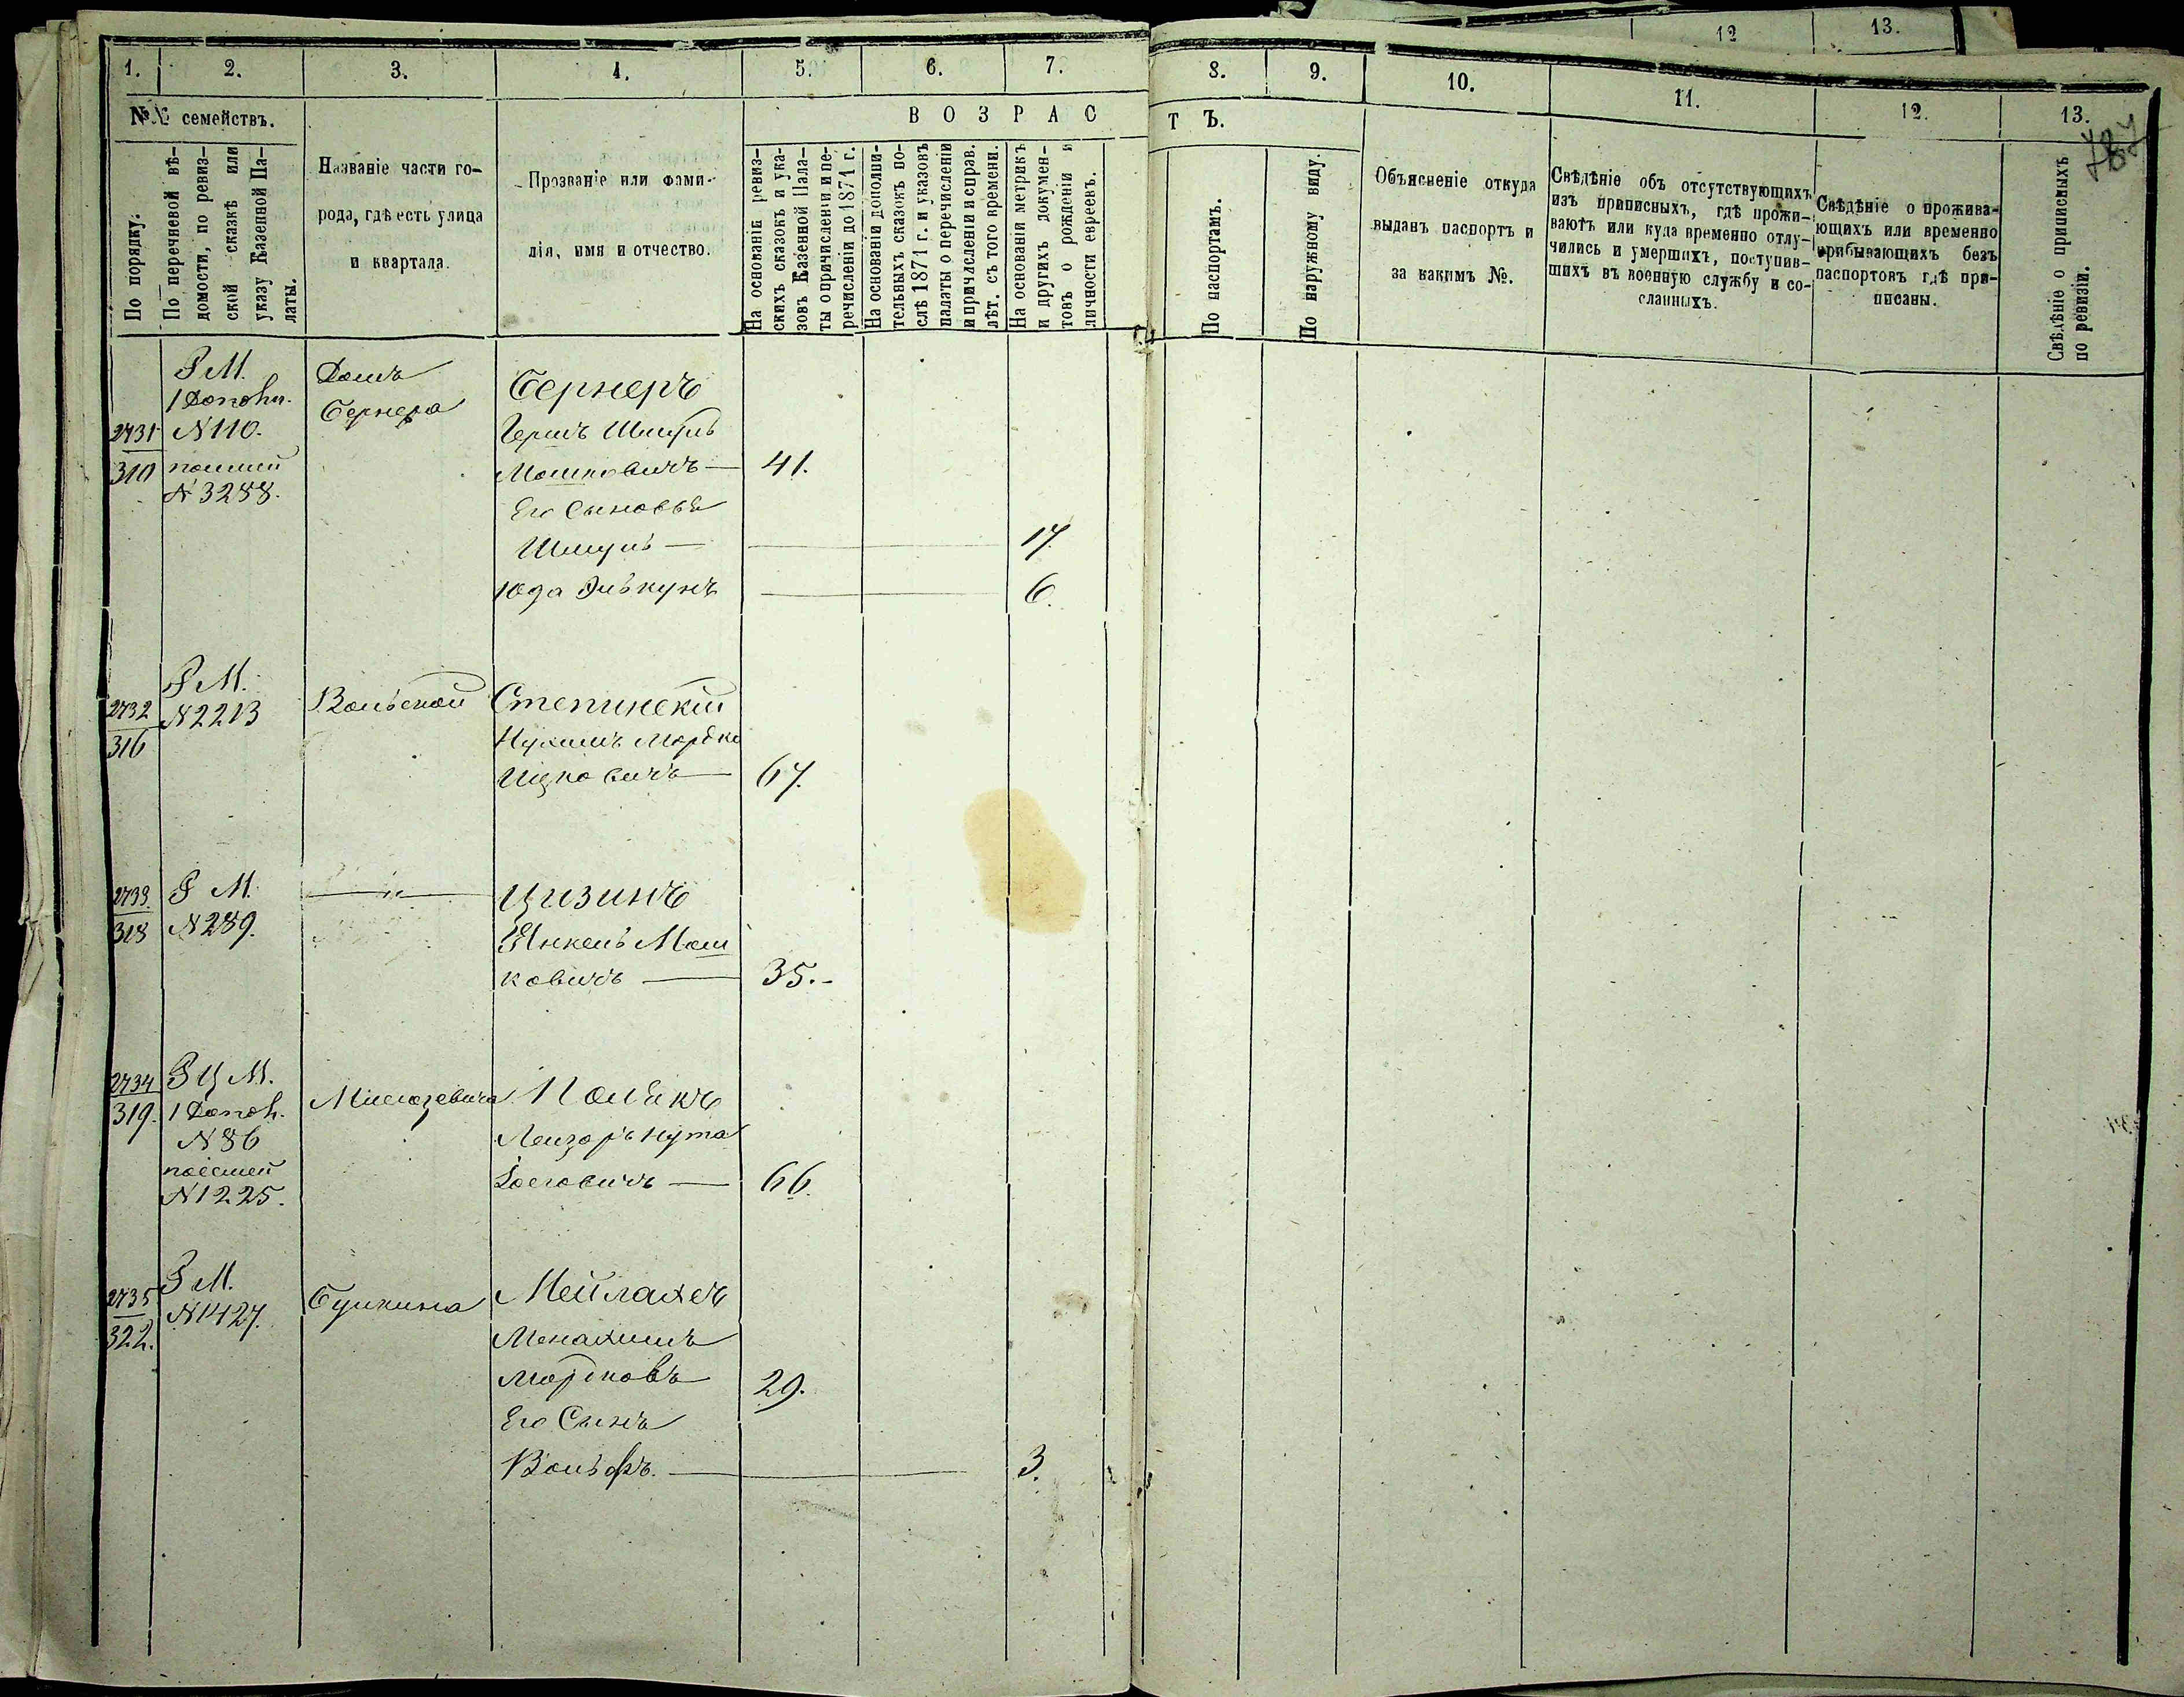 12 13.
1. 2. 3. 4. 5. 6. 7. 8. 9. 10. 11. 12. 13.
№№ семействъ.
По порядку.
По перечневой вѣ-
домости, по ревиз-
ской сказкѣ или
указу Казенной Па-
латы.
Названіе части го-
рода, гдѣ есть улица
и квартала.
Прозваніе или фами-
лія, имя и отчество.
ВОЗРАСТЪ.
На основаніи ревиз-
скихъ сказокъ и ука-
зовъ Казенной Пала-
ты о причисленіи и пе-
речисленіи до 1871 г.
На основаніи дополни-
тельныхъ сказокъ по-
слѣ 1871 г. и указовъ
палаты о перечисленіи
и причисленіи и справ.
лѣт. съ того времени.
На основаніи метрикъ
и другихъ докумен-
товъ о рожденіи и
личности евреевъ.
По паспортамъ.
По наружному виду.
Объясненіе откуда
выданъ паспортъ и
за какимъ №.
Свѣдѣніе объ отсутствующихъ
изъ приписныхъ, гдѣ прожи-
ваютъ или куда временно отлу-
чились и умершихъ, поступив-
шихъ въ военную службу и со-
сланныхъ.
Свѣдѣніе о прожива-
ющихъ или временно
прибывающихъ безъ
паспортовъ гдѣ при-
писаны.
Свѣдѣніе о приписныхъ
по ревизіи.
787
2731
310
Р М.
1 Допол.
N 110.
N 3288.
Домъ
Бернера
Бернеръ
Гершъ Шмуль
Мошковичъ — 41.
Его Сыновья
Шмуль — 17.
Юда Элькунъ 6.
2732
316
Р М.
N 2213
Вольской
Степинскій
Нухимъ Мордко
Ицковичъ — 67.
2733
318
Р М.
N 289.
— " —
Цизинъ
Янкель Мош
ковичъ — 35.-
2734
319.
Р Ц М.
1 Допол.
N 86
N 1225.
Полякъ
Лейзоръ Нута
Іосіовичъ — 66.
2735
322.
Р М.
N 1427.
Бункина
Мейлахъ
Менахимъ
Мордковъ 29.
Его Сынъ
Вольфъ. — 3.